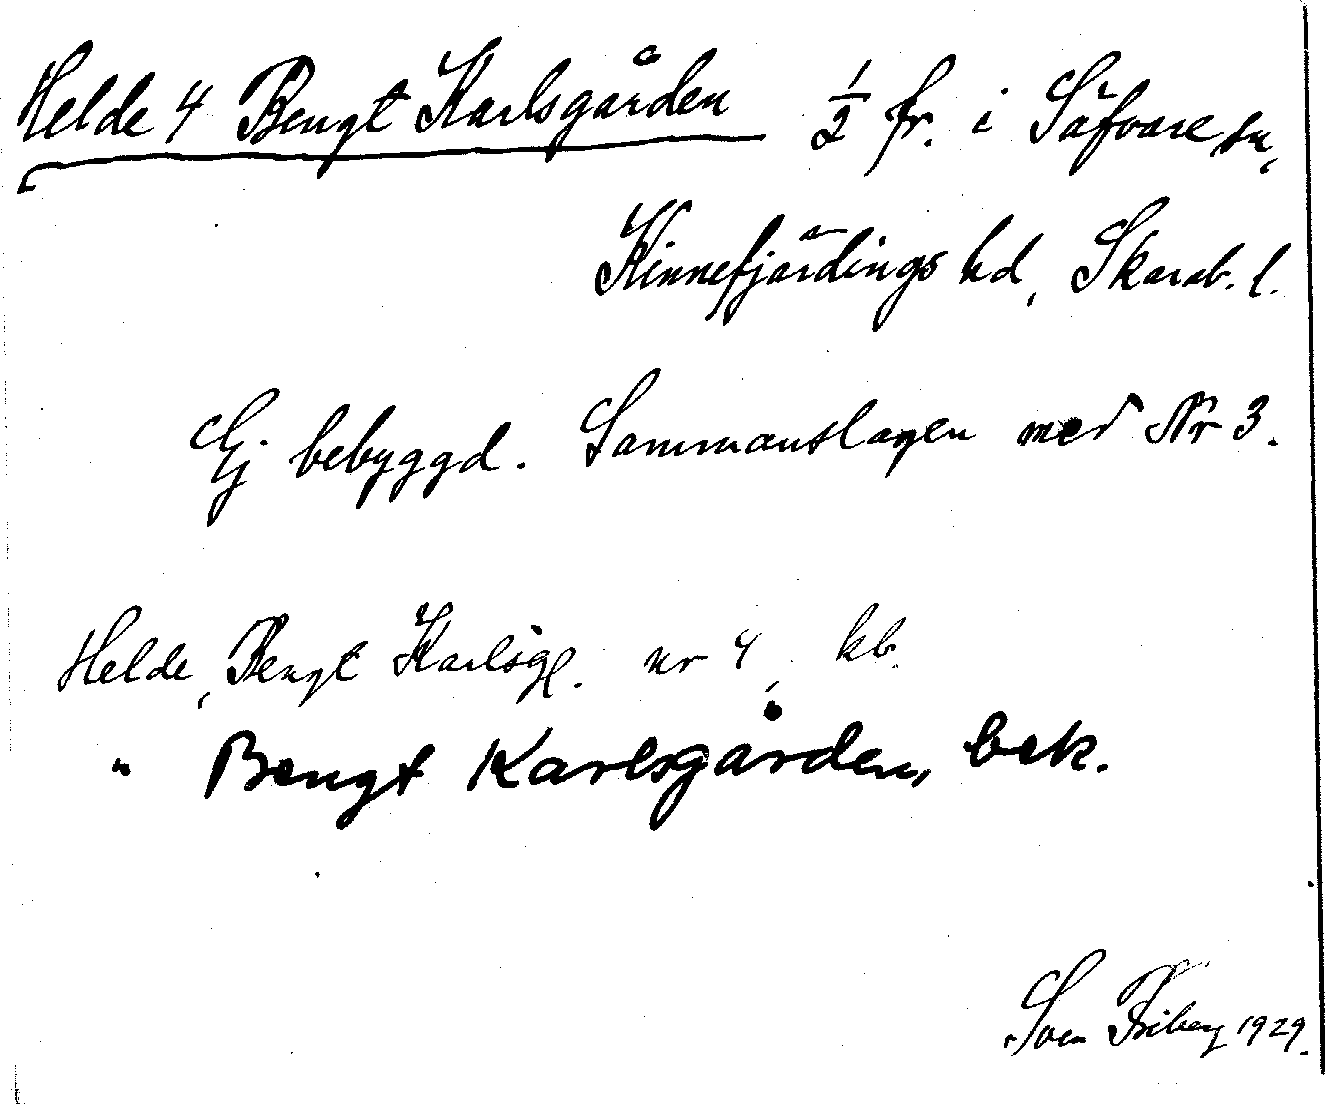 Helde 4 Bengt Karlsgården ½ fr. i Säfvare sn,
Kinnefjärdings hd, Skarab. l.
Ej bebyggd. Sammanslagen med Nr 3.
Helde, Bengt Karlsg. nr 4, kb.
" Bengt Karlsgården, bek.
Sven Friberg 1929.